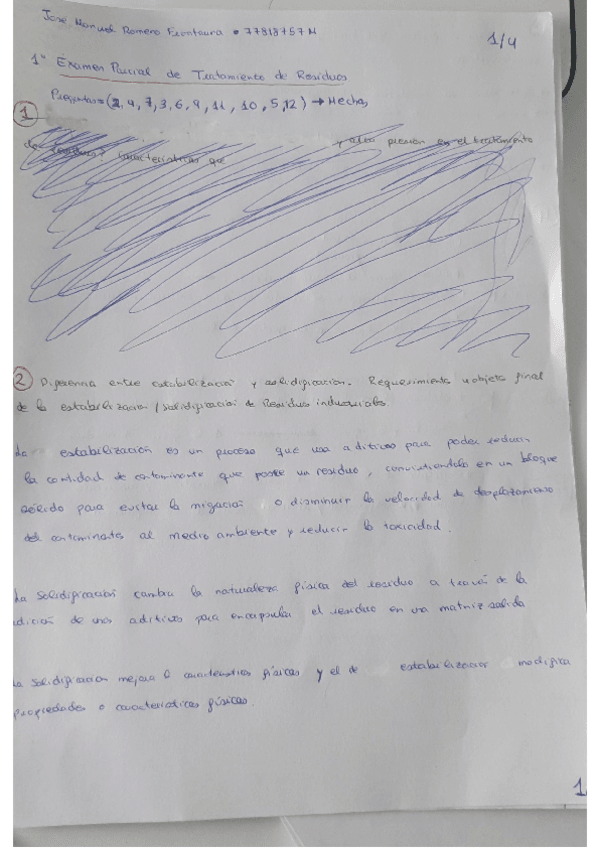 José Manuel Romero Frontaura • 77818757M
1/4
1er Examen Parcial de Tratamiento de Residuos
Preguntas = (2, 4, 7, 3, 6, 9, 11, 10, 5, 12) → Hechas
1
y alta presión en el tratamiento
de residuos? características que
2 Diferencia entre estabilización y solidificación. Requerimiento u objeto final
de la estabilización / solidificación de Residuos industriales.
La estabilización es un proceso que usa aditivos para poder reducir
la cantidad de contaminante que posee un residuo, convirtiendolo en un bloque
sólido para evitar la migración o disminuir la velocidad de desplazamiento
del contaminante al medio ambiente y reducir la toxicidad.
La solidificación cambia la naturaleza física del residuo a través de la
adición de unos aditivos para encapsular el residuo en una matriz solida
La solidificación mejora características físicas y el de estabilización modifica
propiedades o características físicas.
1